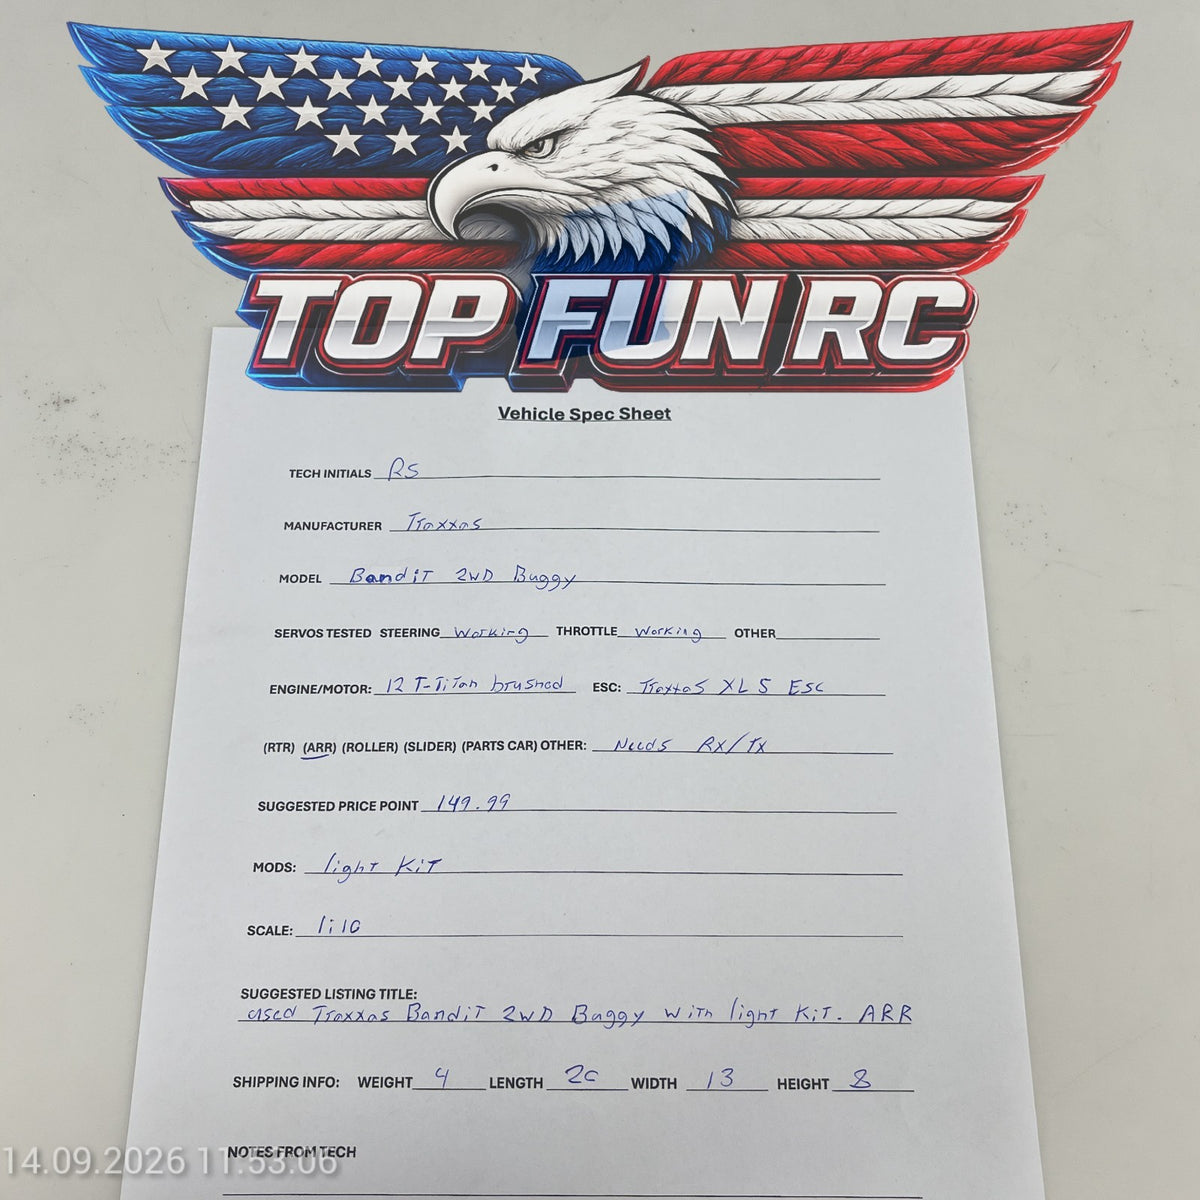 TOP FUN RC
Vehicle Spec Sheet
TECH INITIALS RS
MANUFACTURER Traxxas
MODEL Bandit 2WD Buggy
SERVOS TESTED STEERING Working THROTTLE Working OTHER
ENGINE/MOTOR: 12 T-Titan brushed ESC: Traxxas XL5 Esc
(RTR) (ARR) (ROLLER) (SLIDER) (PARTS CAR) OTHER: Needs Rx/Tx
SUGGESTED PRICE POINT 149.99
MODS: light Kit
SCALE: 1:10
SUGGESTED LISTING TITLE:
used Traxxas Bandit 2WD Buggy with light Kit. ARR
SHIPPING INFO: WEIGHT 4 LENGTH 20 WIDTH 13 HEIGHT 8
NOTES FROM TECH
14.09.2026 11:53:06